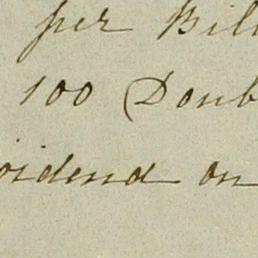 per Bill
100 Doub
vidend on